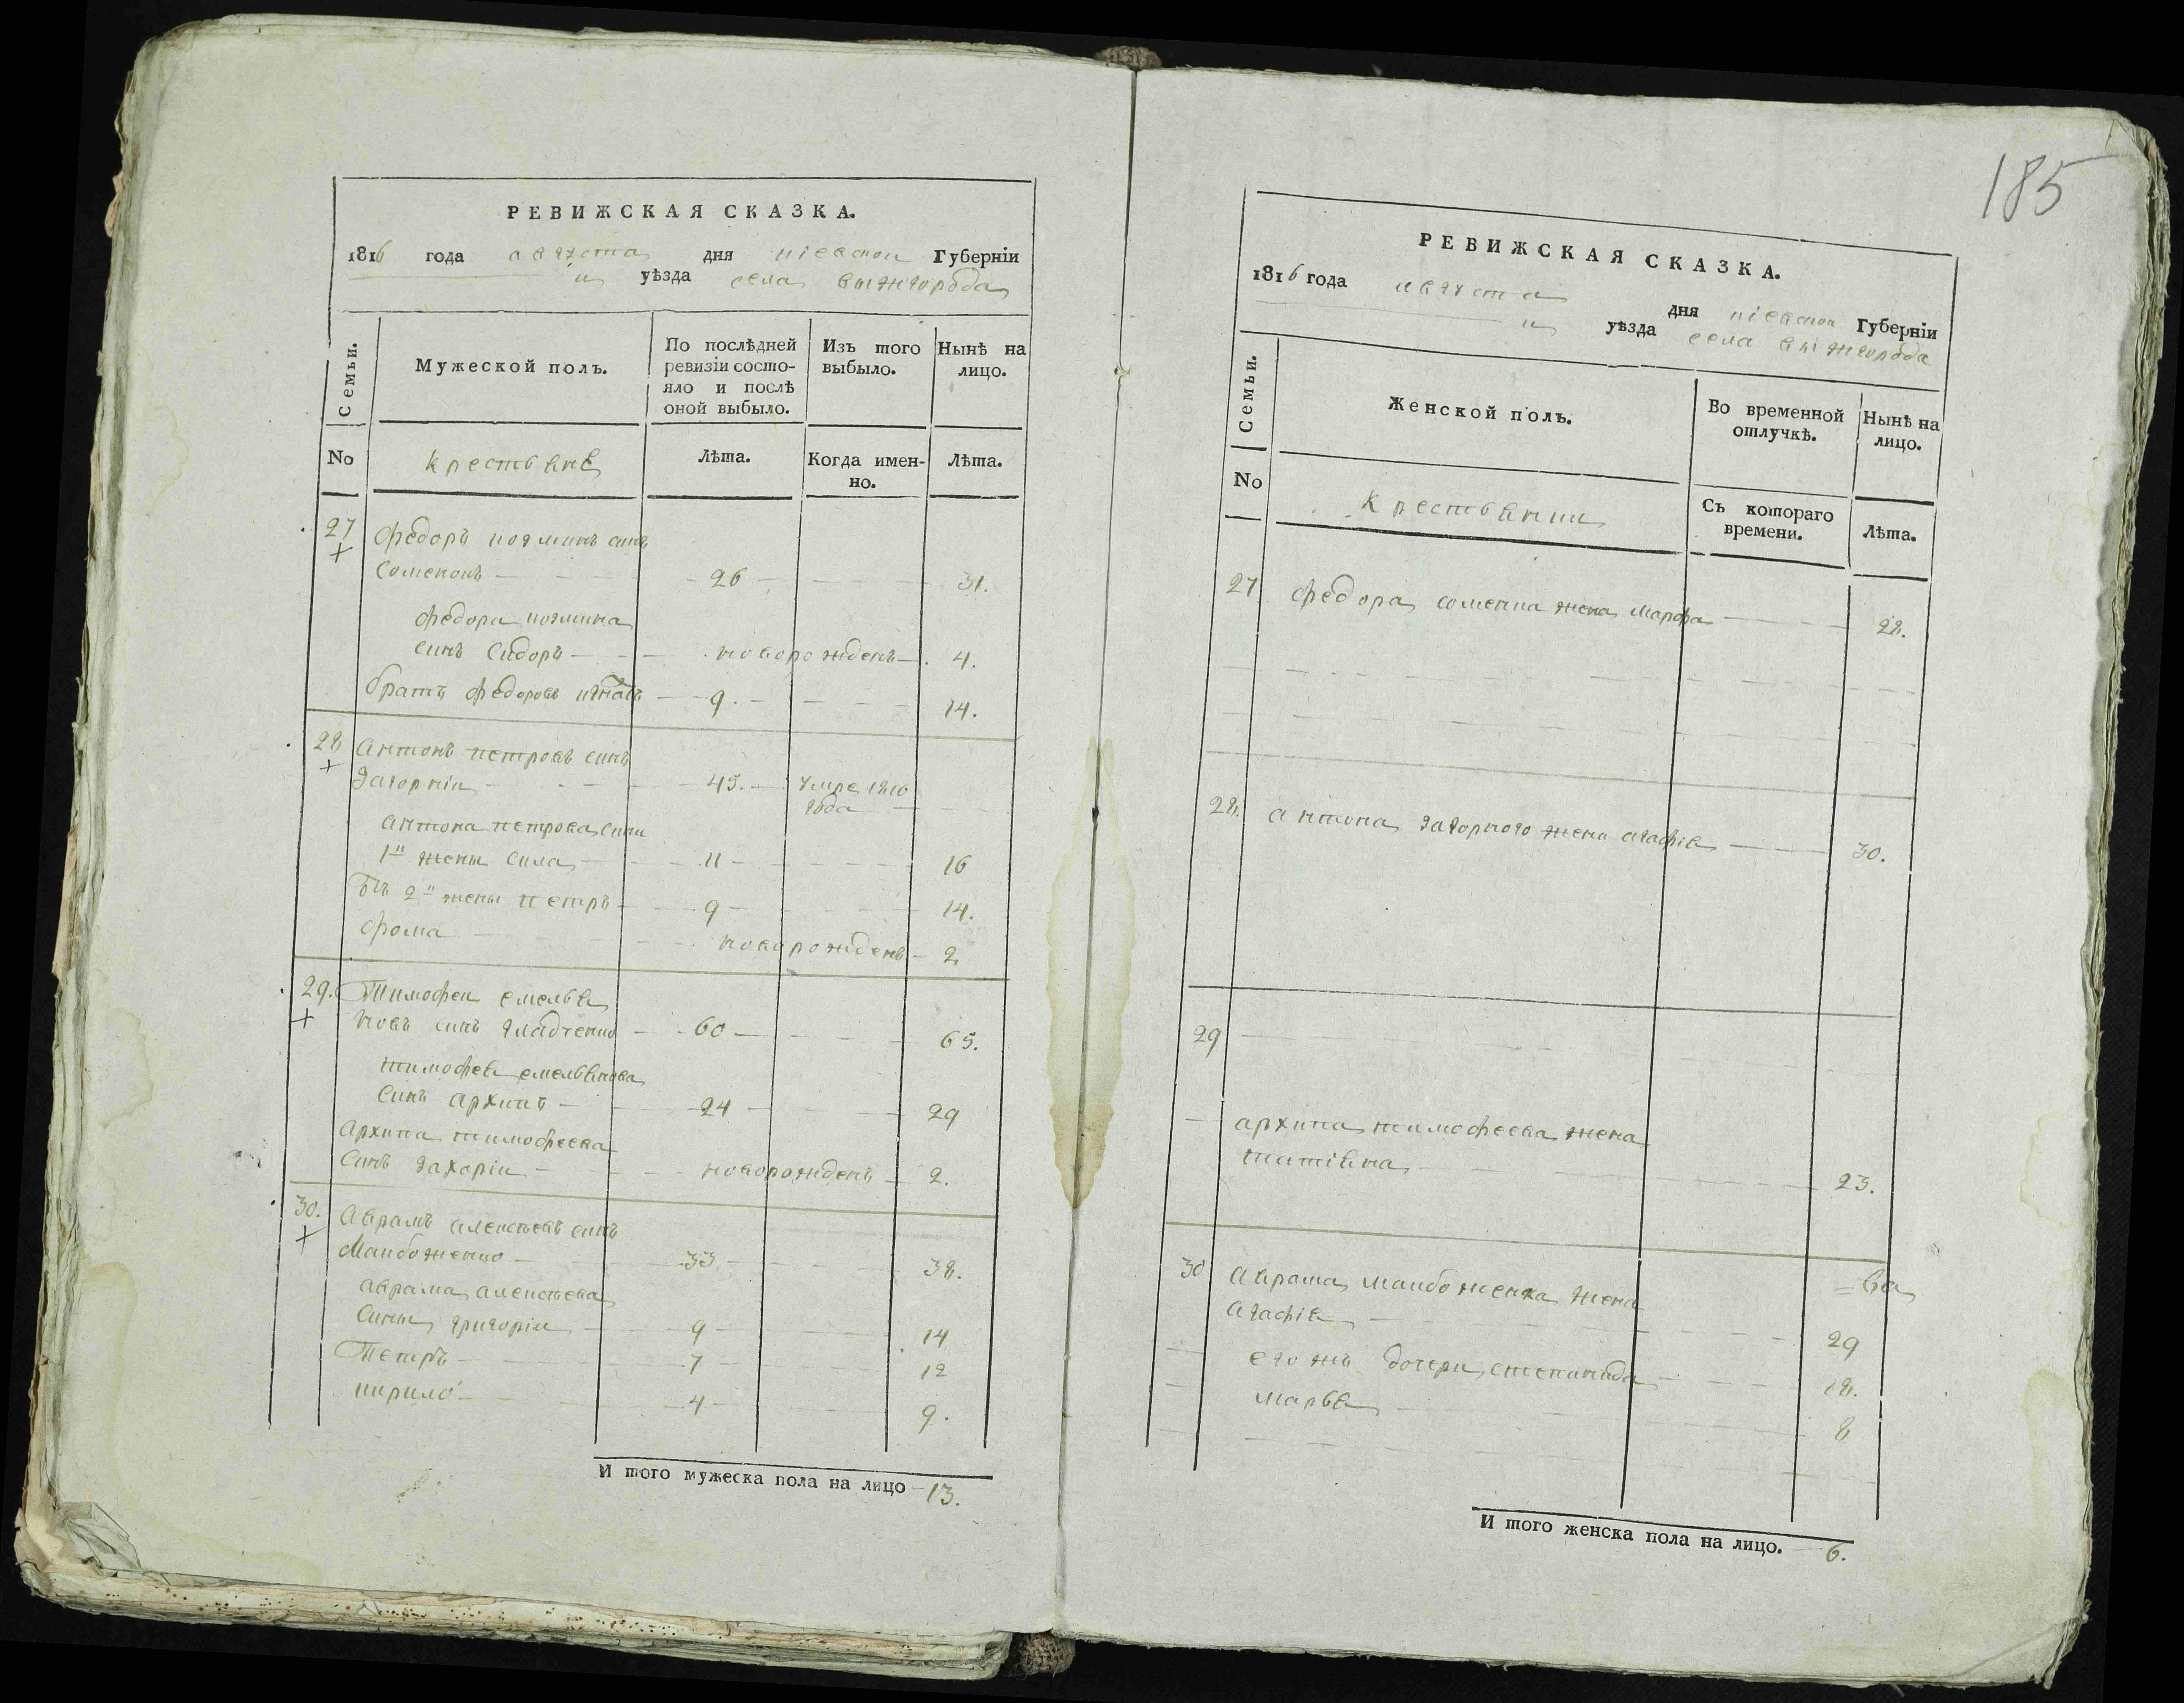 185
РЕВИЖСКАЯ СКАЗКА.
1816 года августа дня кіевской Губерніи
и уѣзда села вышгорода
Семьи.
Мужеской полъ.
По послѣдней ревизіи состо-
яло и послѣ
оной выбыло.
Изъ того
выбыло.
Нынѣ на
лицо.
No
крестьяне
Лѣта.
Когда имен-
но.
Лѣта.
27 Федоръ козминъ синъ
26 31.
Федора козмина
синъ Сидоръ новорожденъ 4.
братъ федоровъ игнатъ 9. 14.
28 Антонъ петровъ синъ
загорніи 45. умре 1816
года
антона петрова сини
1й жени сила 11 16
Въ 2й жены петръ 9 14.
фома новорожденъ 2
29. Тимофеи емелья
новъ синъ гладченко 60 65.
тимофея емельянова
синъ архипъ 24 29
Архипа тимофеева
Синъ захаріи новорожденъ 2.
30. Аврамъ алексѣевъ синъ
33. 38.
аврама алексѣева
сини григоріи 9 14
Петръ 7 12
кирило 4 9.
И того мужеска пола на лицо 13.
РЕВИЖСКАЯ СКАЗКА.
1816 года августа дня кіевской Губерніи
и уѣзда села вышгорода
Семьи.
Женской полъ.
Во временной
отлучкѣ.
Нынѣ на
лицо.
No
крестьянки
Съ котораго
времени.
Лѣта.
27 Федора жена марфа 28.
28. антона загорного жена агафія 30.
29
архипа тимофеева жена
татіяна 23.
30 аврама жена
агафія 29
его жъ дочери степанида 12.
марья 8
И того женска пола на лицо. 6.